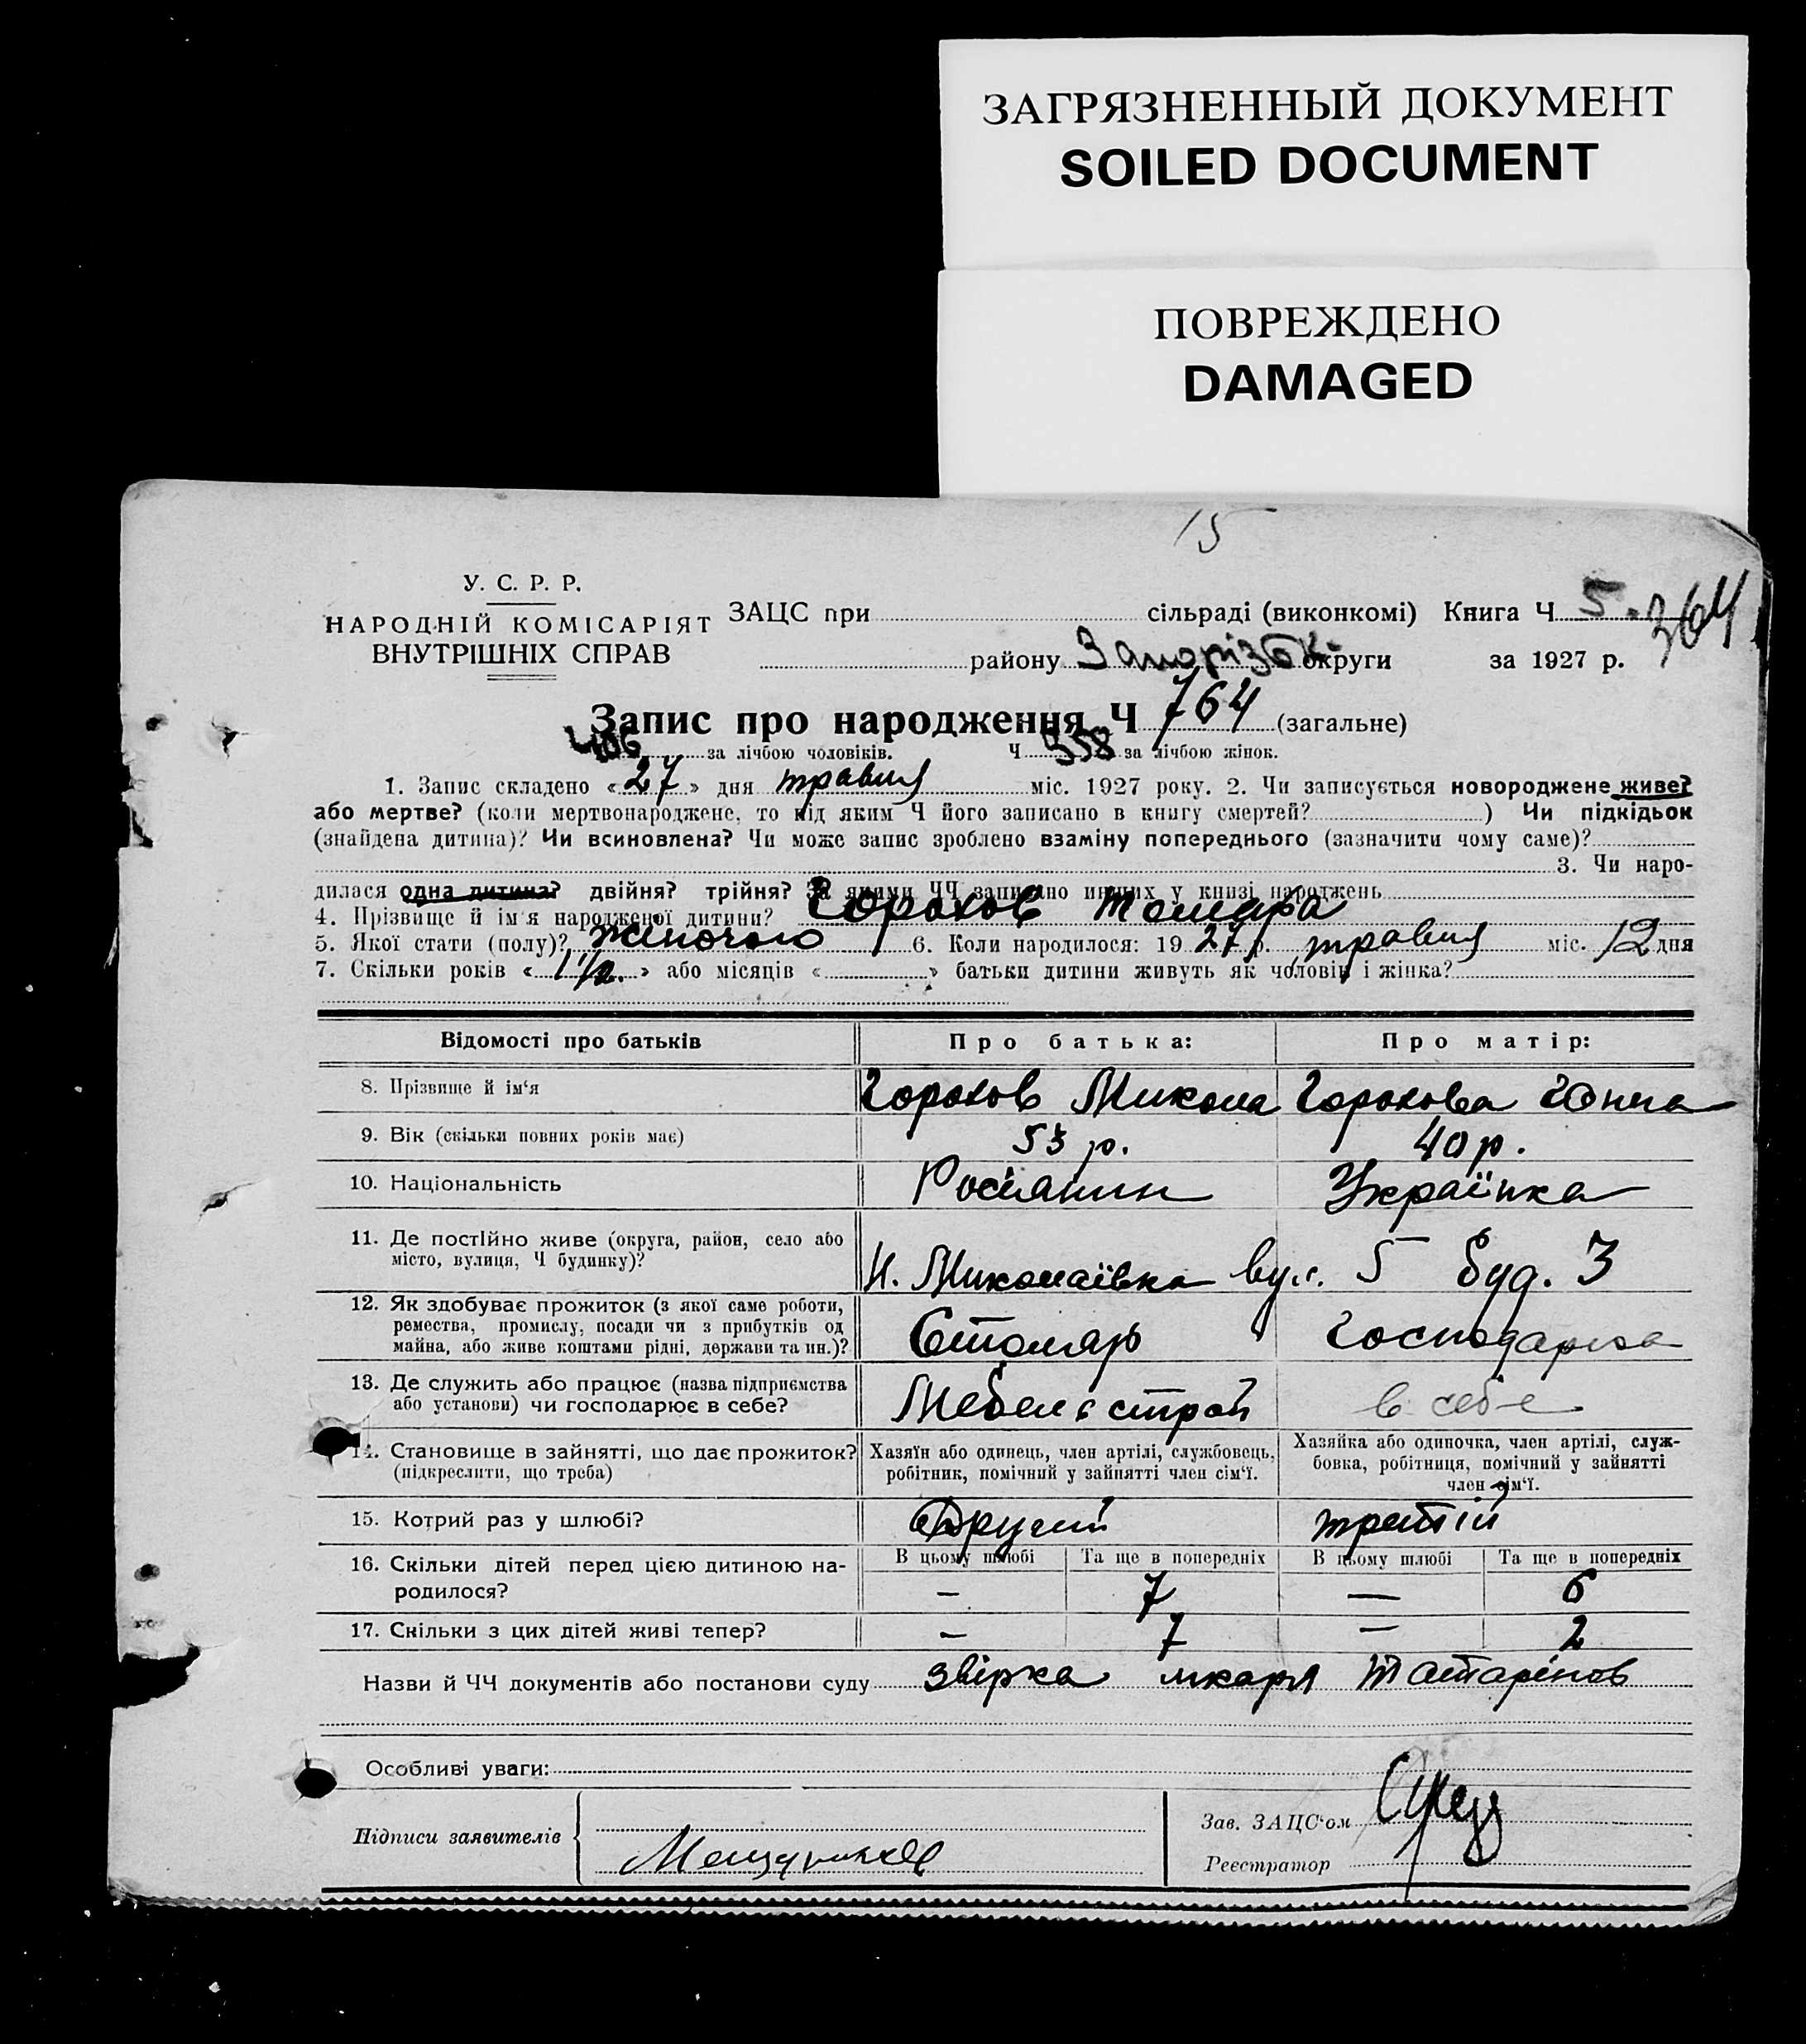 ЗАГРЯЗНЕННЫЙ ДОКУМЕНТ
SOILED DOCUMENT
ПОВРЕЖДЕНО
DAMAGED
15
У. С. Р. Р.
НАРОДНІЙ КОМІСАРІЯТ
ВНУТРІШНІХ СПРАВ
ЗАЦС при сільраді (виконкомі) Книга Ч 5. 364
району Запорізьк. округи за 1927 р.
Запис про народження Ч 764 (загальне)
406 за лічбою чоловіків. Ч 358 за лічбою жінок.
1. Запис складено «27» дня травня міс. 1927 року. 2. Чи записується новороджене живе?
або мертве? (коли мертвонароджене, то під яким Ч його записано в книгу смертей? ) Чи підкідьок
(знайдена дитина)? Чи всиновлена? Чи може запис зроблено взаміну попереднього (зазначити чому саме)?
3. Чи наро-
дилася одна дитина? двійня? трійня? За якими ЧЧ записано инших у книзі народжень
4. Прізвище й ім'я народженої дитини? Горохов Тамара
5. Якої стати (полу)? жіночого 6. Коли народилося: 1927 р. травня міс. 12 дня
7. Скільки років «1 1/2» або місяців « » батьки дитини живуть як чоловік і жінка?
Відомості про батьків Про батька: Про матір:
8. Прізвище й ім‘я Горохов Микола Горохова Ганна
9. Вік (скільки повних років має) 53 р. 40 р.
10. Національність Росіянин Українка
11. Де постійно живе (округа, район, село або
місто, вулиця, Ч будинку)? Н. Миколаївка вул. 5 буд. 3
12. Як здобуває прожиток (з якої саме роботи,
ремества, промислу, посади чи з прибутків од
майна, або живе коштами рідні, держави та ин.)? Столяр Господарка
13. Де служить або працює (назва підприємства
або установи) чи господарює в себе? в себе
14. Становище в зайнятті, що дає прожиток?
(підкреслити, що треба)
Хазяїн або одинець, член артілі, службовець,
робітник, помічний у зайнятті член сім‘ї.
Хазяйка або одиночка, член артілі, служ-
бовка, робітниця, помічний у зайнятті
член сім‘ї.
15. Котрий раз у шлюбі? Другий третій
16. Скільки дітей перед цією дитиною на-
родилося?
В цьому шлюбі Та ще в попередніх В цьому шлюбі Та ще в попередніх
— 7 — 6
17. Скільки з цих дітей живі тепер? — 7 — 2
Назви й ЧЧ документів або постанови суду звірка лікаря Татарінов
Особливі уваги:
Підписи заявителів
Зав. ЗАЦС‘ом
Реєстратор